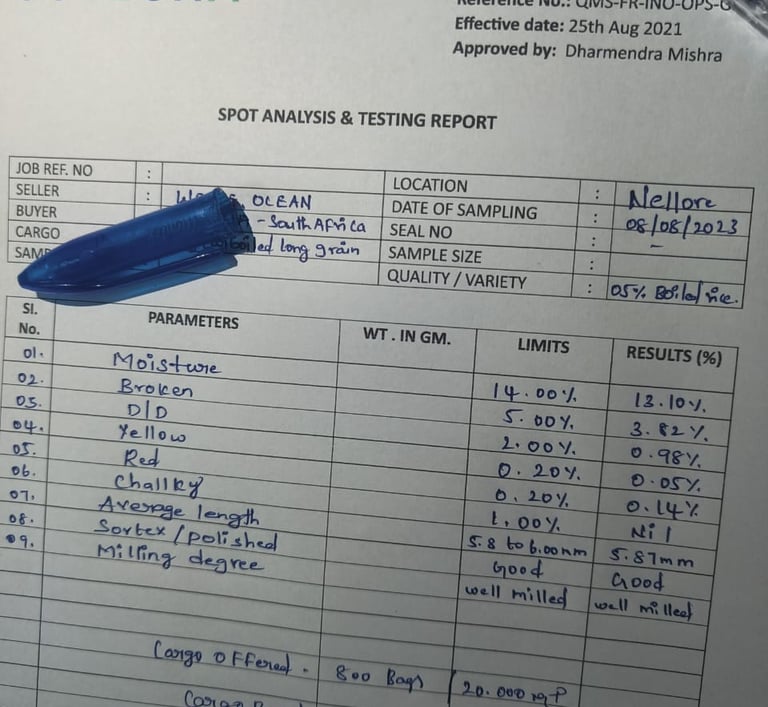 Reference No.: QMS-FR-INO-OPS-G
Effective date: 25th Aug 2021
Approved by: Dharmendra Mishra
SPOT ANALYSIS & TESTING REPORT
JOB REF. NO :
SELLER : OCEAN
BUYER - South Africa
CARGO boiled long grain
SAMP
LOCATION : Nellore
DATE OF SAMPLING : 08/08/2023
SEAL NO : -
SAMPLE SIZE :
QUALITY / VARIETY : 05% Boiled rice.
Sl. No. PARAMETERS WT . IN GM. LIMITS RESULTS (%)
01. Moisture 14.00% 13.10%
02. Broken 5.00% 3.82%
03. D/D 2.00% 0.98%
04. Yellow 0.20% 0.05%
05. Red 0.20% 0.14%
06. Chalky 1.00% Nil
07. Average length 5.8 to 6.00mm 5.87mm
08. Sortex/polished Good Good
09. Milling degree well milled well milled
Cargo Offered . 800 Bags / 20.000
Cargo